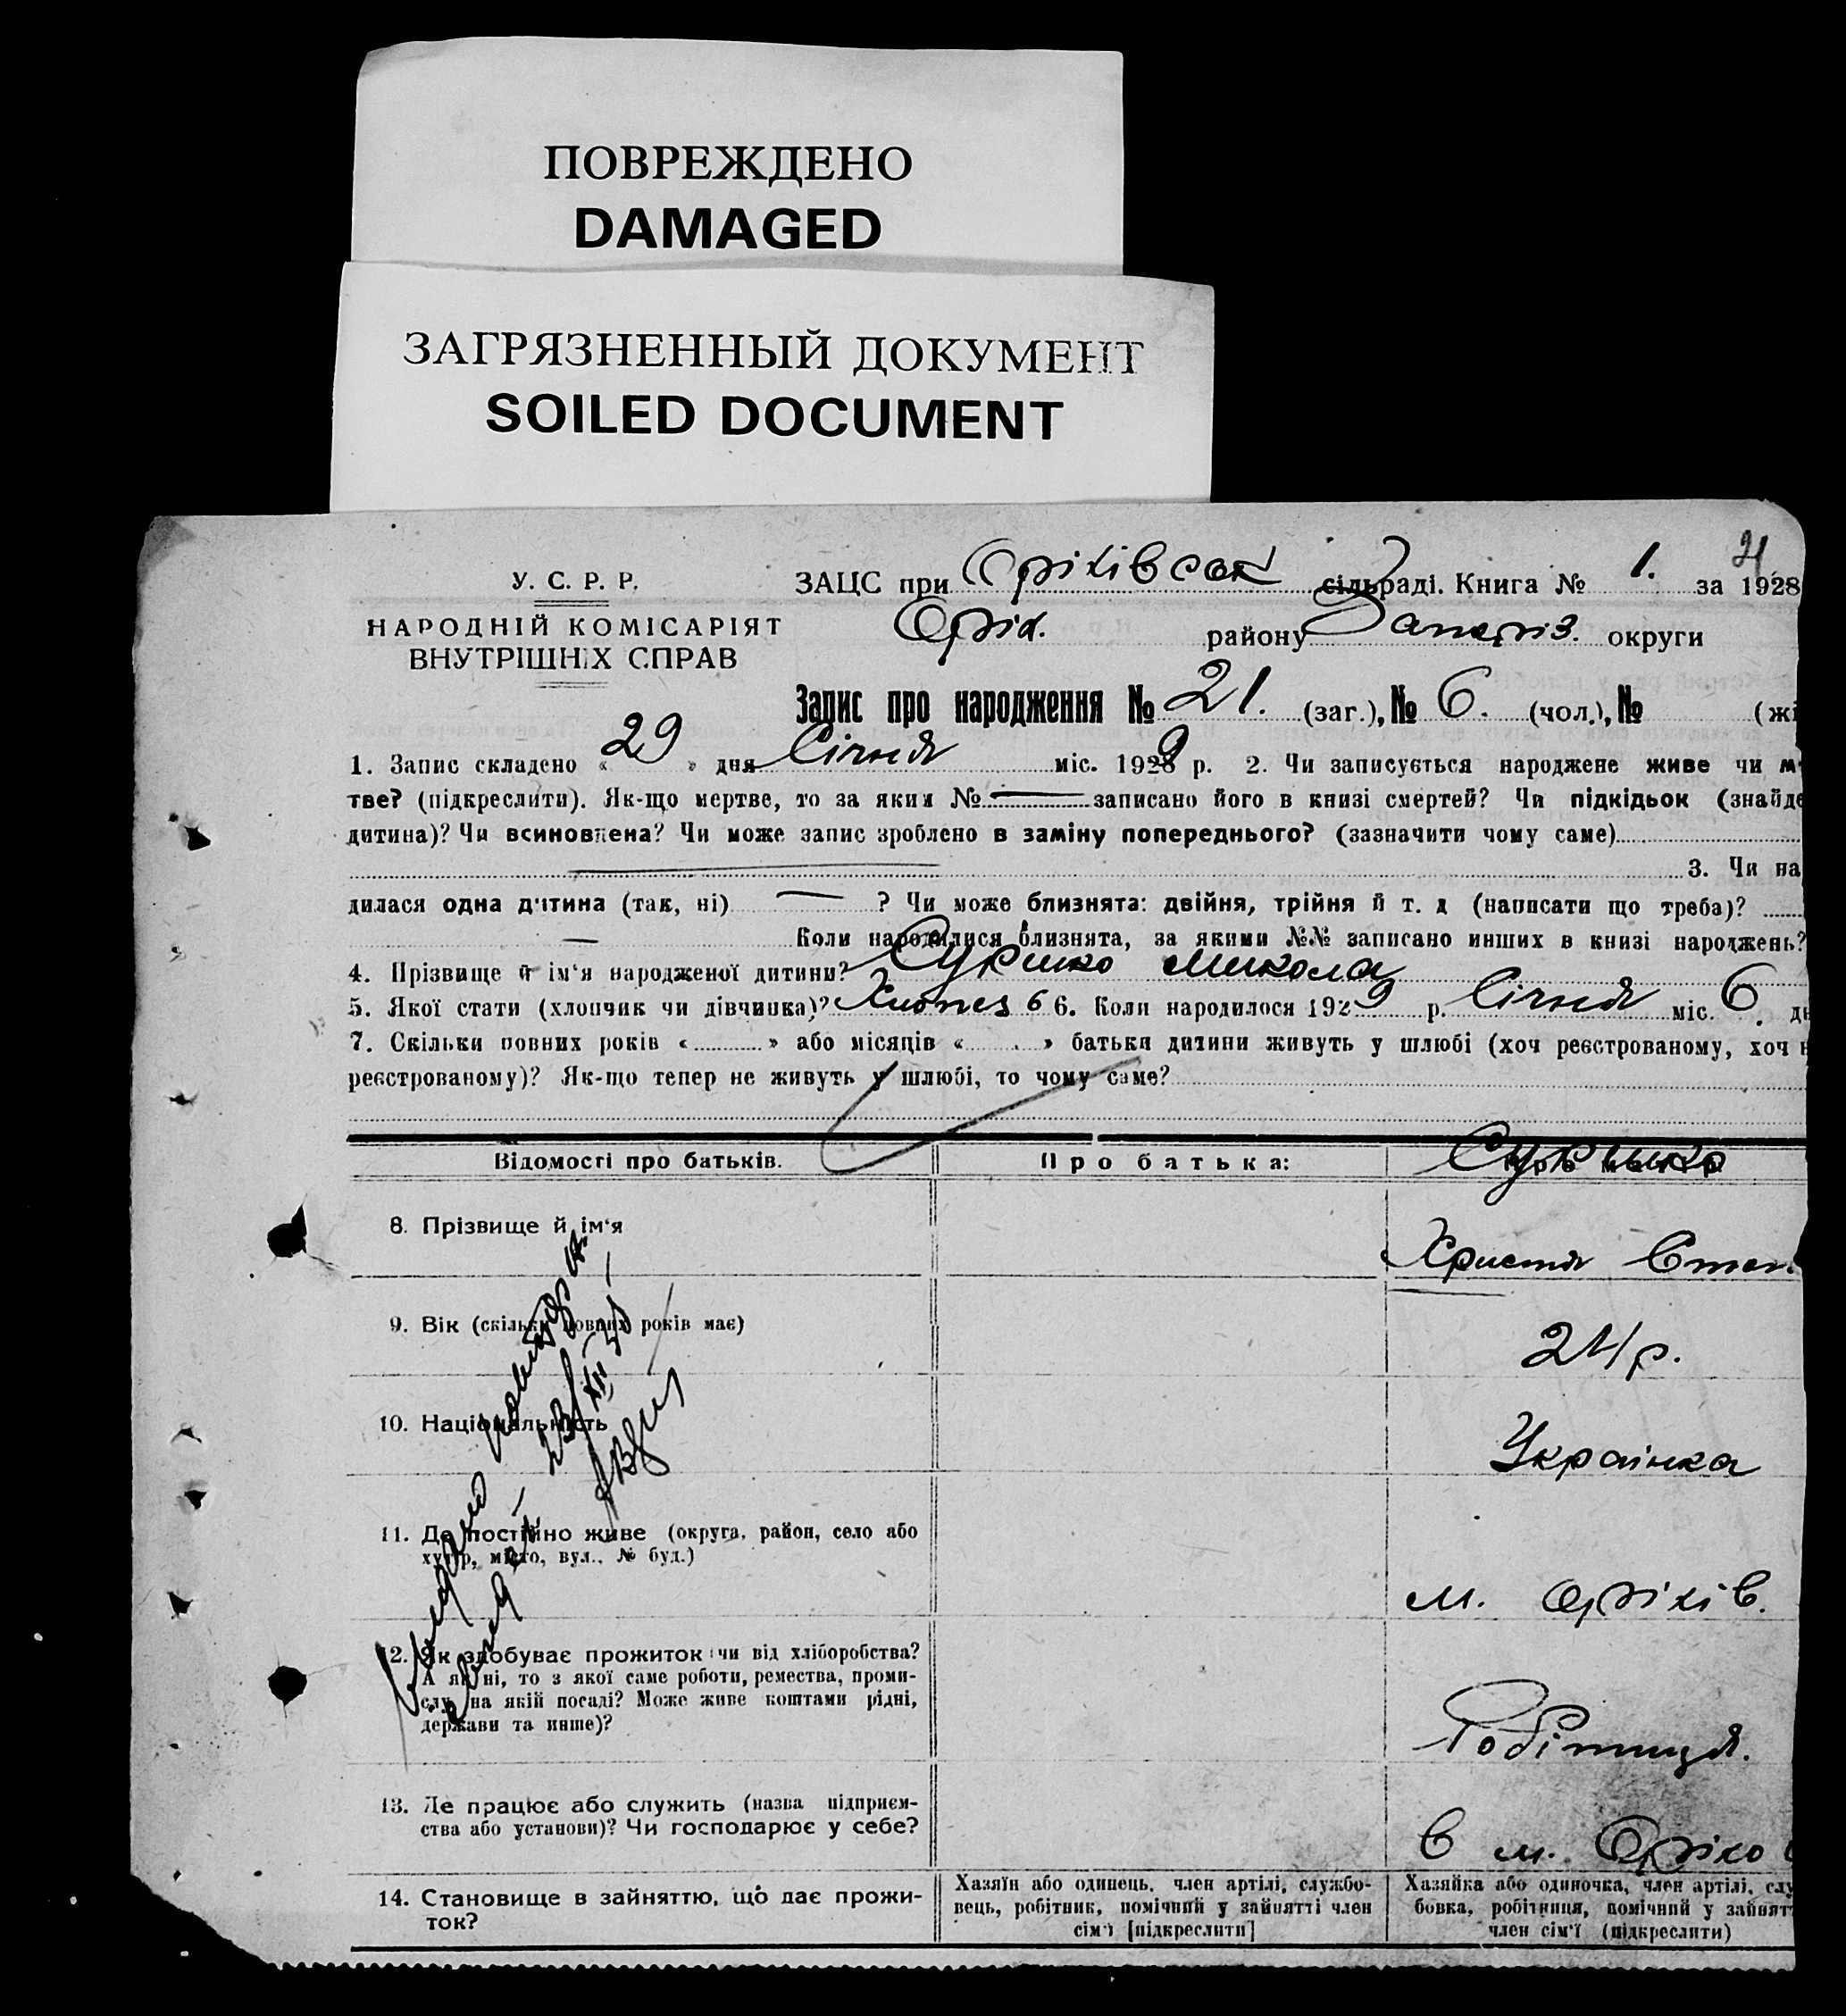 ПОВРЕЖДЕНО
DAMAGED
ЗАГРЯЗНЕННЫЙ ДОКУМЕНТ
SOILED DOCUMENT
21
У. С. Р. Р.
НАРОДНІЙ КОМІСАРІЯТ
ВНУТРІШНІХ СПРАВ
ЗАЦС при Оріхівськ сільраді. Книга № 1. за 1928
Оріх. району Запоріз. округи
Запис про народження № 21. (заг.), № 6. (чол.), № (жі
1. Запис складено « 29 » дня Січня міс. 1929 р. 2. Чи записується народжене живе чи м
тве? (підкреслити). Як-що мертве, то за яким № — записано його в книзі смертей? Чи підкідьок (знайде
дитина)? Чи всиновлена? Чи може запис зроблено в заміну попереднього? (зазначити чому саме)
3. Чи на
дилася одна дитина (так, ні) — ? Чи може близнята: двійня, трійня й т. д (написати що треба)?
— Коли народилися близнята, за якими №№ записано инших в книзі народжень?
4. Прізвище й ім'я народженої дитини? Микола
5. Якої стати (хлопчик чи дівчинка)? Хлопец 6. Коли народилося 1929 р. Січня міс. 6. дн
7. Скільки повних років « » або місяців « » батьки дитини живуть у шлюбі (хоч реєстрованому, хоч н
реєстрованому)? Як-що тепер не живуть у шлюбі, то чому саме?
Відомості про батьків.
Про батька:
8. Прізвище й ім'я
Христя Степ
9. Вік (скільки повних років має)
24 р.
10. Національність
Українка
11. Де постійно живе (округа, район, село або
хутір, місто, вул., № буд.)
м. Оріхів.
12. Як здобуває прожиток (чи від хліборобства?
А як ні, то з якої саме роботи, ремества, проми-
слу, на якій посаді? Може живе коштами рідні,
держави та инше)?
Робітниця.
13. Де працює або служить (назва підприєм-
ства або установи)? Чи господарює у себе?
в м. Оріхо
14. Становище в зайняттю, що дає прожи-
ток?
Хазяїн або одинець, член артілі, службо-
вець, робітник, помічний у зайнятті член
сім'ї [підкреслити]
Хазяйка або одиночка, член артілі, слу
бовка, робітниця, помічний у зайнят
член сім'ї (підкреслити)
23/XII